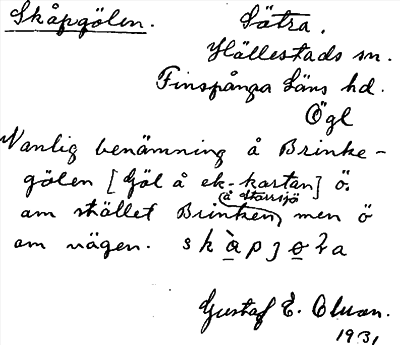 Skåpgölen. Sätra.
Hällestads sn.
Finspånga läns hd.
Ögl
Vanlig benämning å Brinke-
gölen [Göl å ek. kartan] ö.
å Starrsjö
om stället Brinken, men ö
om vägen.
Gustaf E.
1931